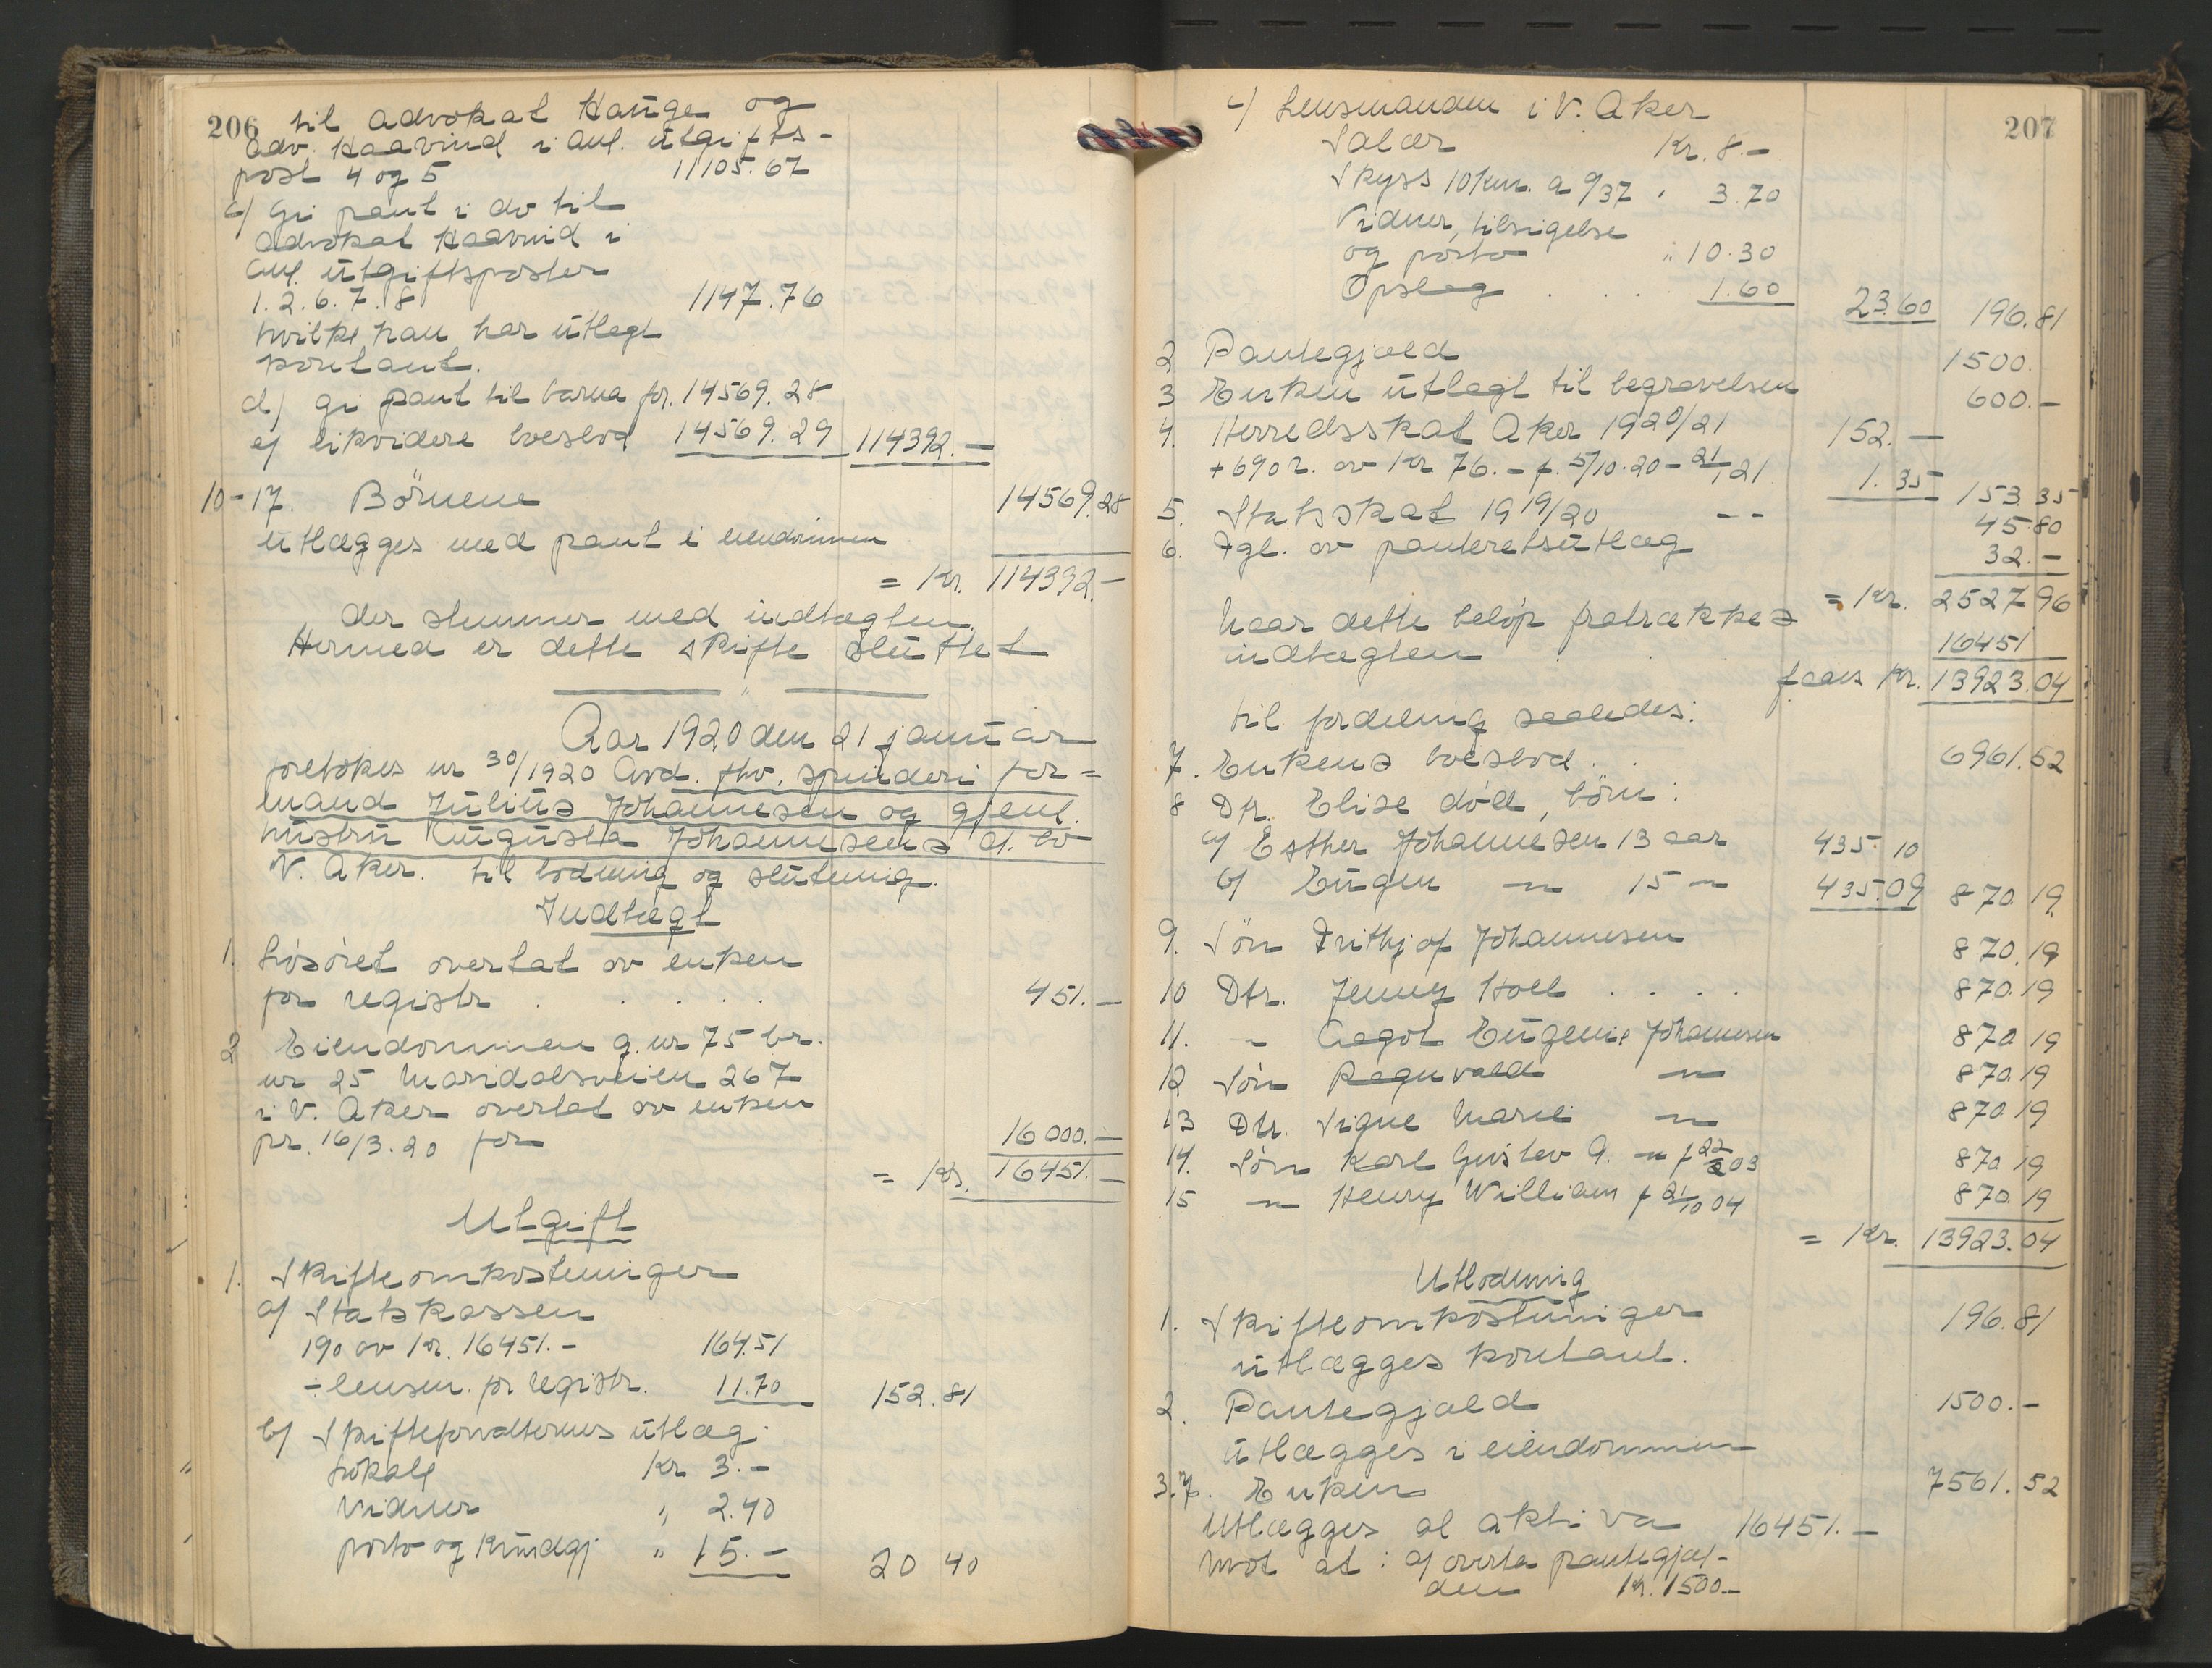 206
til advokat Hauge og
adv. Haavind i anl. utgifts-
post 4 og 5 11105.67
c/ gi pant i do til
advokat Haavind i
anl. utgiftsposter
1. 2. 6. 7. 8 1147.76
hvilke han har utlagt
kontant.
d/ gi pant til barna for. 14569.28
e/ likvidere boeslod 14569.29 114392.—
10-17. Börnene 14569.28
utlægges med pant i eiendommen
= Kr. 114392.—
der stemmer med indtægten.
Hermed er dette skifte sluttet
Aar 1920 den 21 januar
foretokes nr 30/1920 Avd. fhv. spinderi for=
mand Julius Johannesen og gjenl.
hustru Augusta Johannesens d. bo
V. Aker. til lodning og slutning.
Indtægt
1. Lösöret overtat av enken
for registr . . . . . 451.—
2 Eiendommen g. nr 75 br.
nr 25 Maridalsveien 267
i V. Aker overtat av enken
pr. 16/3.20 for 16000.—
= Kr. 16451.—
Utgift
1. Skifteomkostninger
a/ Statskassen
1% av Kr. 16451.- 164.51
÷ lensm. for registr. 11.70 152.81
b/ Skifteforvalterens utlæg.
Lokale Kr 3.—
Vidner " 2.40
porto og Kundgj. " 15.— 20 40
207
c/ Lensmanden i V. Aker
Salær Kr. 8.—
Skyss 10 km. a 0/37 " 3.70
Vidner, tilsigelse
og porto " 10.30
Opslag . . . 1.60 23.60 196.81
2 Pantegjæld 1500.
3 Enken utlagt til begravelsen 600.—
4. Herredsskat Aker 1920/21 152.—
+ 6% r. av Kr 76.— f. 5/10.20 - 21/1 21 1.35 153.35
5. Statsskat 1919/20 -- 45.80
6. Fgl. av panteretsutlæg 32.—
= Kr. 2527 96
Naar dette belöp fratrækkes
indtægten . . 16451
faaes Kr. 13923.04
til fordeling saaledes:
7. Enkens boeslod . . 6961.52
8 Dtr. Elise död, börn:
a/ Esther Johannesen 13 aar 435.10
b/ Eugen — 15 — 435.09 870.19
9. Sön Frithjof Johannesen 870.19
10 Dtr. Jenny Holl . . . . 870.19
11. - Aagot Eugenie Johannesen 870 19
12 Sön Ragnvald — 870.19
13 Dtr. Signe Marie — 870 19
14. Sön Karl Gustav A. — f 22/2 03 870 19
15 — Henry William f 21/10 04 870.19
= Kr. 13923.04
Utlodning
1. Skifteomkostninger 196.81
utlægges kontant.
2. Pantegjæld 1500.—
utlægges i eiendommen
3.7. Enken 7561.52
Utlægges al aktiva 16451.—
mot at: a/ overta pantegjæl-
den Kr. 1500.—